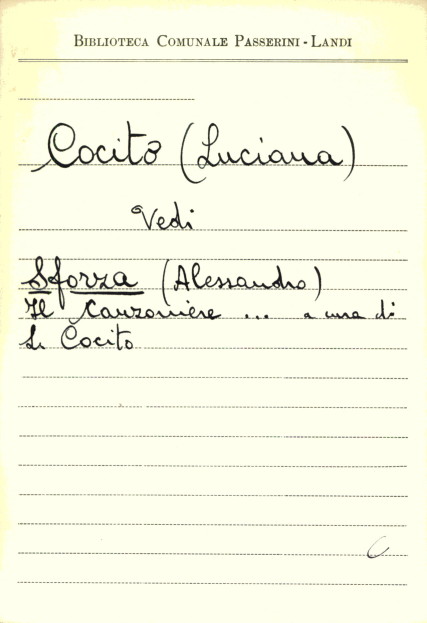 BIBLIOTECA COMUNALE PASSERINI - LANDI
Cocito (Luciana)
Vedi
Sforza (Alessandro)
Il Canzoniere ... a cura di
L. Cocito